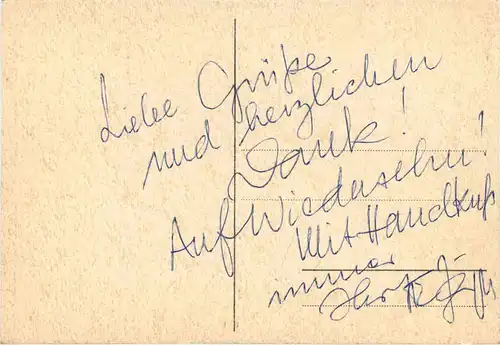 Liebe Grüße
und herzlichen
Dank!
Auf Wiedersehn!
Mit Handkuß
immer